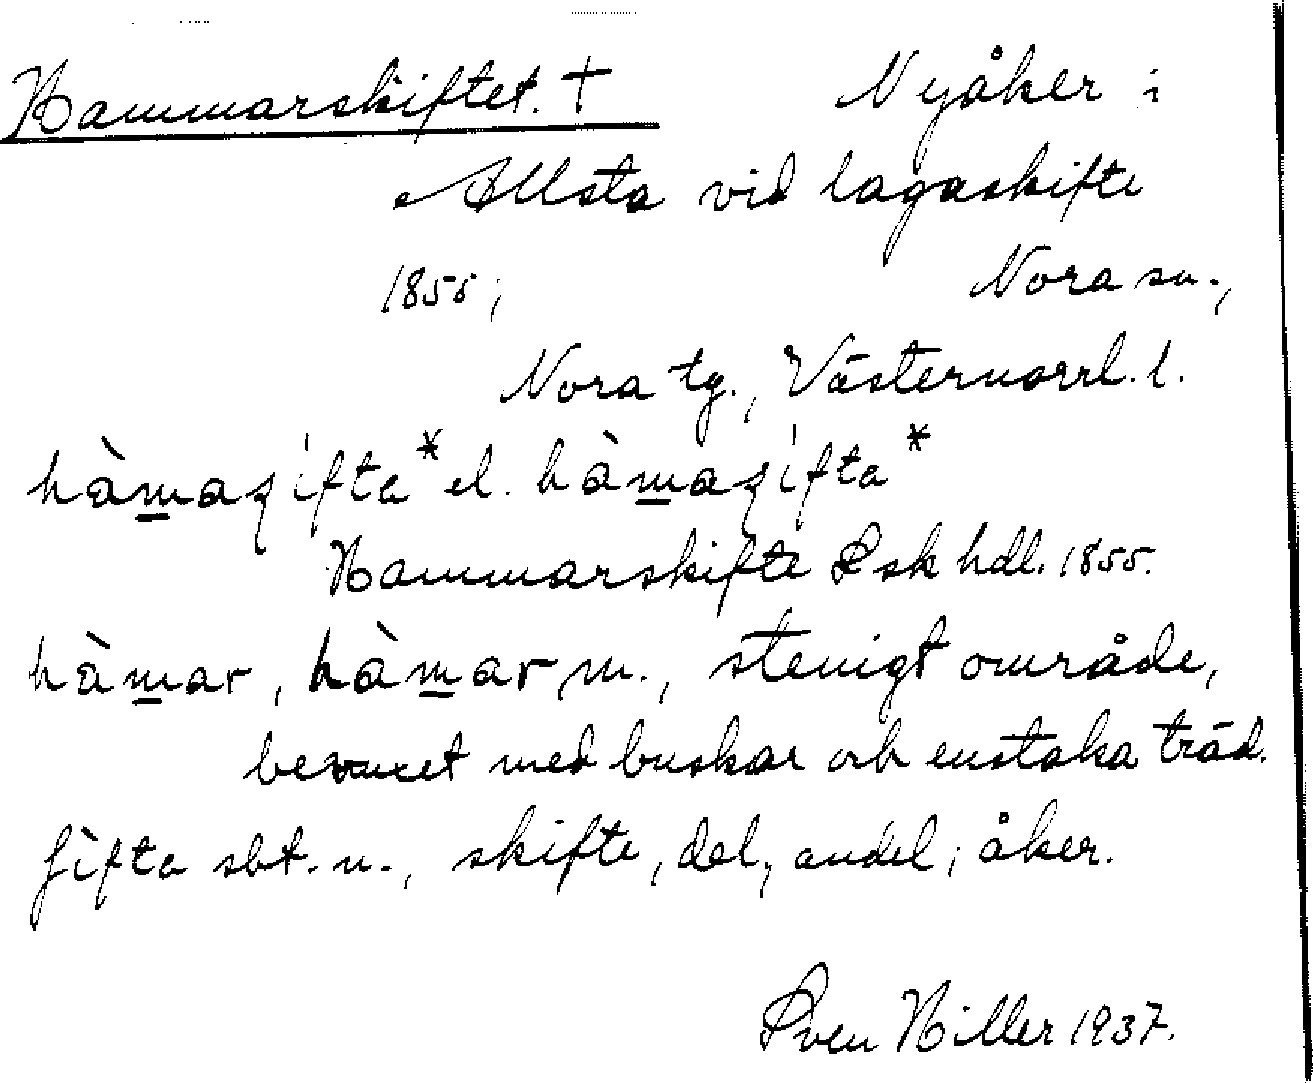 Hammarskiftet. † Nyåker i
Allsta vid lagaskifte
1855; Nora sn.,
Nora tg., Västernorrl. l.
hàmaʂifta* el. hàmaʂifta*
Hammarskifte Lsk hdl. 1855.
hàmar, hàmar m., stenigt område,
bevuxet med buskar och enstaka träd.
ʃifta sbt. n., skifte, del, andel; åker.
Sven Hiller 1937.